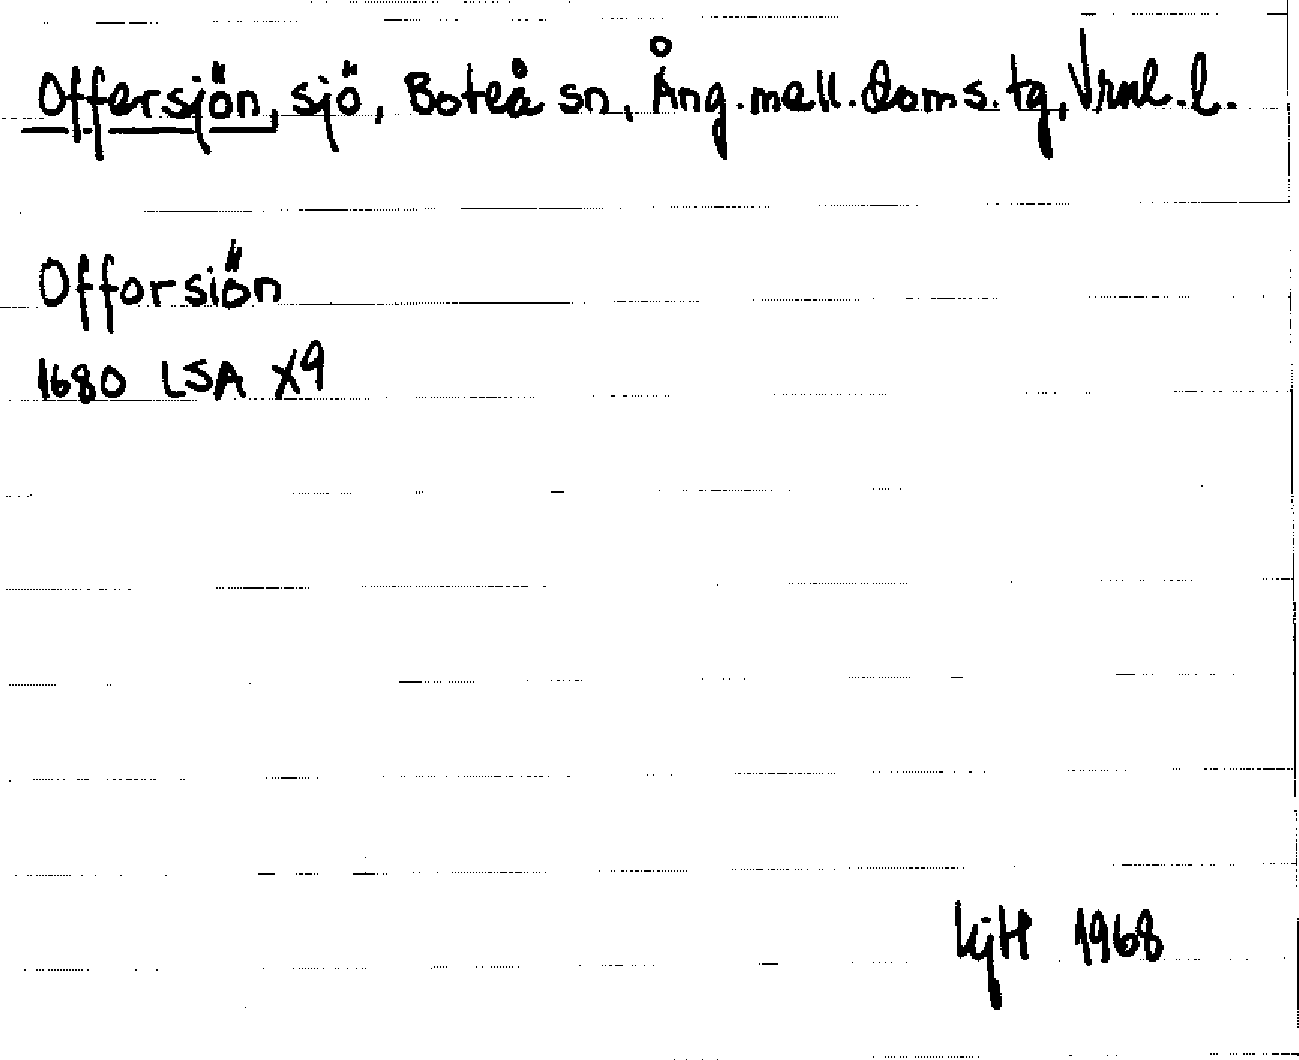 Offersjön, sjö, Boteå sn, Ång. mell. doms. tg, Vrnl. l.
Offorsiön
1680 LSA X9
LgH 1968